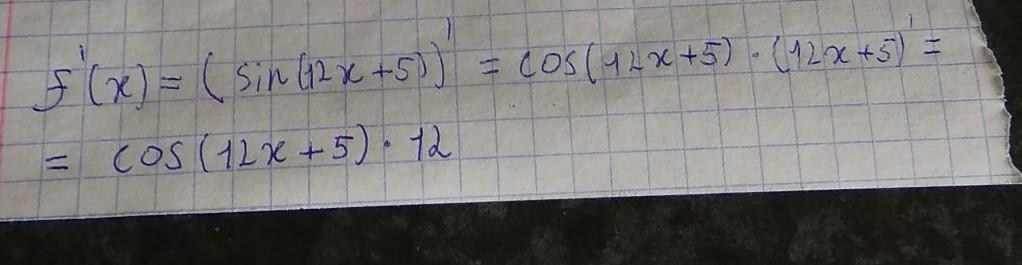 f'(x) = (sin(12x+5))' = cos(12x+5) · (12x+5)' =
= cos(12x+5) · 12